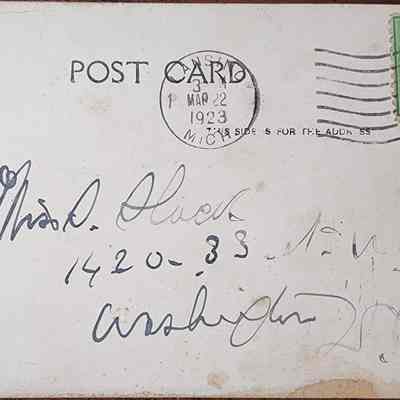 POST CARD
LANSING
3
MAR 22
1923
MICH
THIS SIDE IS FOR THE ADDRESS
Miss D.
1420-33 N.W.
Washington